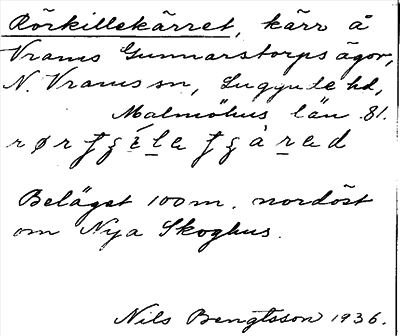 Rörkillekärret, kärr å
Vrams Gunnarstorps ägor,
N. Vrams sn, Luggude hd,
Malmöhus län 81.
Beläget 100 m. nordöst
om Nya Skoghus.
Nils Bengtsson 1936.